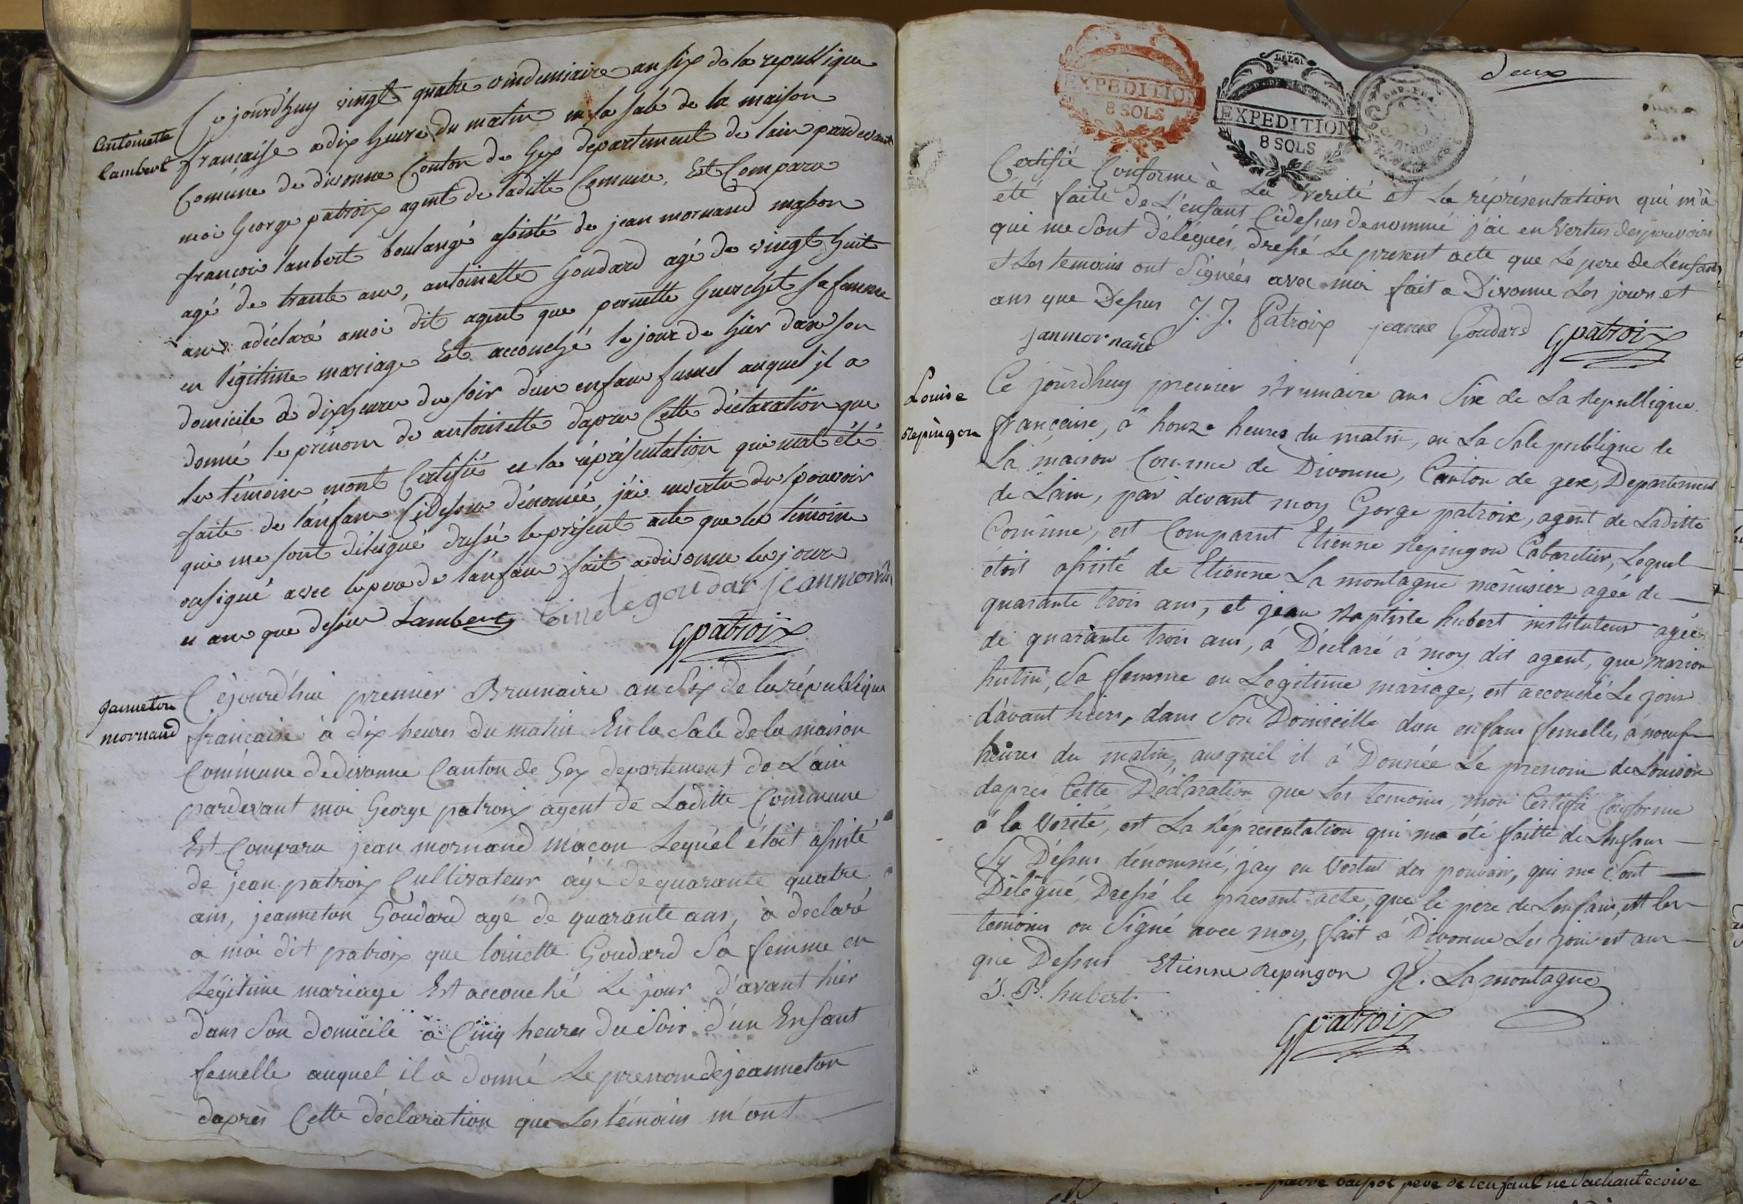 Antoinette
Lambert
Ce jourd'huy vingt quatre vindemiaire an six de la republique
francaise a dix heure du matin en la sale de la maison
Comune de divonne Conton de Gex departement de lain pardevant
moi George patroix agent de laditte Comune, Est Comparu
francoi lambert boulangé assisté de jean mornand masson
agé de trante ans, antoinette Goudard agé de vingt huit
ans adéclaré amoi dit agent que pernette Guerchet sa femme
en légitime mariage Est accouché le jour de hier dans son
domicile a dix heures du soir dun enfan fumel auquel il a
donné le prénom de antoinette dapres Cette déclaration que
les témoins mont Certifié et la réprésentation qui mat été
faite de lanfan Cidessus dénomé jai envertu du pouvoir
qui me sont délégué dressé le présent acte que les témoins
onsigné avec le pere de lanfan fait a divonne les jour
et an que dessus Lambert toinete goudar jeanmornan
G patroix
janneton
mornand
Cejourd'hui premier Brumaire an six de la république
francaise à dix heures du matin En la Sale de la maison
Commune de divonne Canton de Gex departement de L'ain
pardevant moi George patroix agent de Laditte Commune
Est Comparu jean mornand macon Lequél étoit assisté
de jean patroix Cultivateur agé de quarante quatre
ans, jeanneton Goudard agé de quarante ans, à déclaré
a moi dit patroix que toinette Goudard Sa femme en
Légitime mariage Est accouché Le jour d'avant hier
dans Son domicile à Cinq heures du Soir d'un Enfant
femelle auquel il à donné Le prenom de jeanneton
daprès Cette déclaration que Les témoins m'ont
deux
EXPEDITION
8 SOLS
LA LOI
EXPEDITION
8 SOLS
Certifié Conforme à La Verité et La répresentation qui m'a
été faite de L'enfant Cidessus denommé j'ai en Vertus des pouvoirs
qui me Sont délégués, dressé Le present acte que Le pere de L'enfant
et Les temoins ont Signées avec moi fait a Divonne Les jours et
ans que Dessus J. J. Patroix jeanne Goudard G patroix
janmornand
Louise
Repingon
Ce jourdhuy premier Brumaire ans Sixe de La Republique
française, à honze heures du matin, en La Sale publique de
La maison Commune de Divonne, Canton de gexe, Departement
de Lain, par devant moy Gorge patroix, agent de Laditte
Commune, est Comparut Etienne Repingon Cabaretier, Lequel
étoit assisté de Etienne La montagne menusier agée de
quarante trois ans, et jean Baptiste hubert instituteur agée
de quarante trois ans, à Déclaré à moy dit agent, que marion
hutin, Sa femme en Légitime mariage, est accouché Le jour
davant hiers, dans Son Domicille dun enfans femelle, à noeuf
heures du matin, auquel il à Donnée Le prenom de Louison
dapres Cette Déclaration que Les temoins mon Certifié Conforme
à la Vérité, est La répresentation qui ma été faitte de Lenfans
Sy Dessus dénommé, jay en Vertut des pouvoirs, qui me Sont
Délégué, Dressé le present acte, que le pere de Lenfans, est les
temoins on Signé avec moy, fait à Divonne Les jour est ans
que Dessus Etienne Repingon E. La montagne
J. B. hubert.
G patroix
pere de lenfant ne Sachant écrire